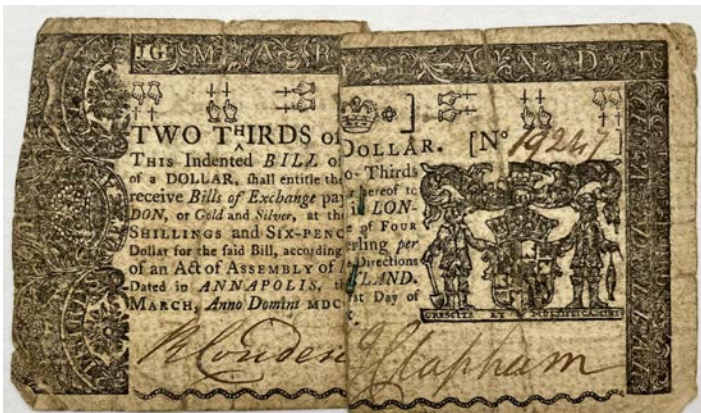 JG M A R L A N D TS
TWO THIRDS of DOLLAR. [No 19247]
THIS Indented BILL o o-Thirds
of a DOLLAR, shall entitle the r hereof to
receive Bills of Exchange pay LON-
DON, or Gold and Silver, at the e of FOUR
SHILLINGS and SIX-PENC erling per
Dollar for the said Bill, according Directions
of an Act of ASSEMBLY of LAND.
Dated in ANNAPOLIS, th st Day of
MARCH, Anno Domini MDC
CRESCITE ET MULTIPLICAMINI
R Couden J Clapham